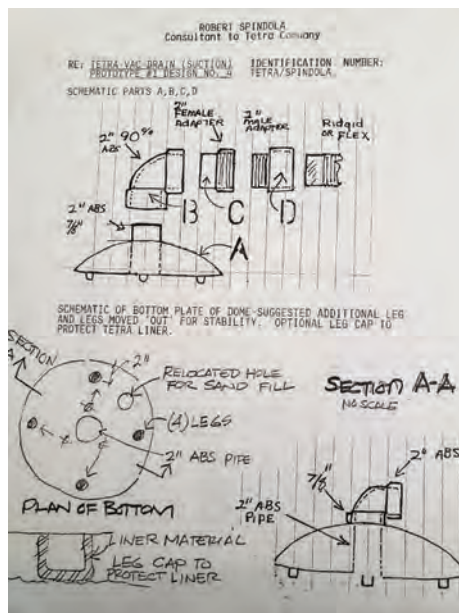 ROBERT SPINDOLA
Consultant to Tetra Company
RE: TETRA-VAC-DRAIN (SUCTION)
PROTOTYPE #1 DESIGN NO. 4
IDENTIFICATION NUMBER:
TETRA/SPINDOLA
SCHEMATIC PARTS A,B,C,D
2" 90°
ABS
2"
FEMALE
ADAPTER
2"
MALE
ADAPTER
Ridgid
OR FLEX
B
C
D
2" ABS
7/8"
A
SCHEMATIC OF BOTTOM PLATE OF DOME-SUGGESTED ADDITIONAL LEG
AND LEGS MOVED 'OUT' FOR STABILITY. OPTIONAL LEG CAP TO
PROTECT TETRA LINER.
SECTION
A
2"
RELOCATED HOLE
FOR SAND FILL
(4) LEGS
2" ABS PIPE
PLAN OF BOTTOM
LINER MATERIAL
LEG CAP TO
PROTECT LINER
SECTION A-A
NO SCALE
7/8"
2" ABS
2" ABS
PIPE